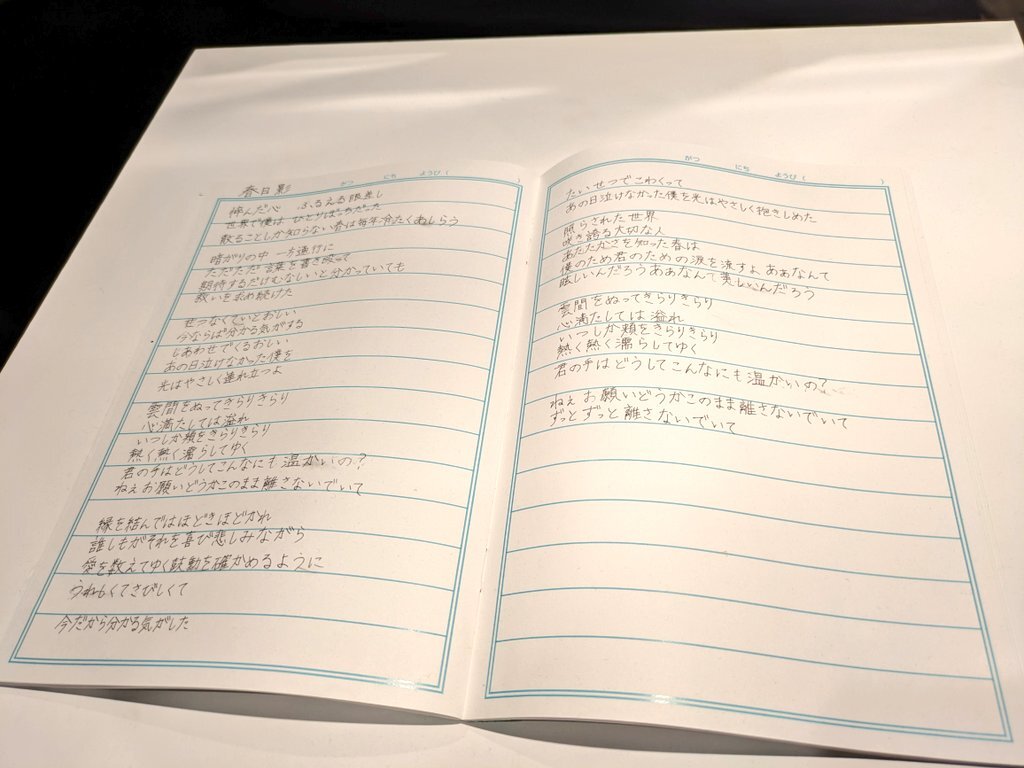 がつ にち ようび (
春日影
悴んだ心 ふるえる眼差し
世界で僕は ひとりぼっちだった
散ることしか知らない春は毎年冷たくあしらう
暗がりの中 一方通行に
ただただ 言葉を書き殴って
期待するだけむなしいと分かっていても
救いを求め続けた
せつなくていとおしい
今ならば分かる気がする
しあわせでくるおしい
あの日泣けなかった僕を
光はやさしく連れ立つよ
雲間をぬってきらりきらり
心満たしては溢れ
いつしか頬をきらりきらり
熱く熱く濡らしてゆく
君の手はどうしてこんなにも温かいの?
ねぇお願いどうかこのまま離さないでいて
縁を結んではほどきほどかれ
誰しもがそれを喜び悲しみながら
愛を数えてゆく鼓動を確かめるように
うれしくてさびしくて
今だから分かる気がした
がつ にち ようび (
たいせつでこわくって
あの日泣けなかった僕を光はやさしく抱きしめた
照らされた世界
咲き誇る大切な人
あたたかさを知った春は
僕のため君のための涙を流すよ ああなんて
眩しいんだろうああなんて美しいんだろう
雲間をぬってきらりきらり
心満たしては溢れ
いつしか頬をきらりきらり
熱く熱く濡らしてゆく
君の手はどうしてこんなにも温かいの?
ねぇお願いどうかこのまま離さないでいて
ずっとずっと離さないでいて